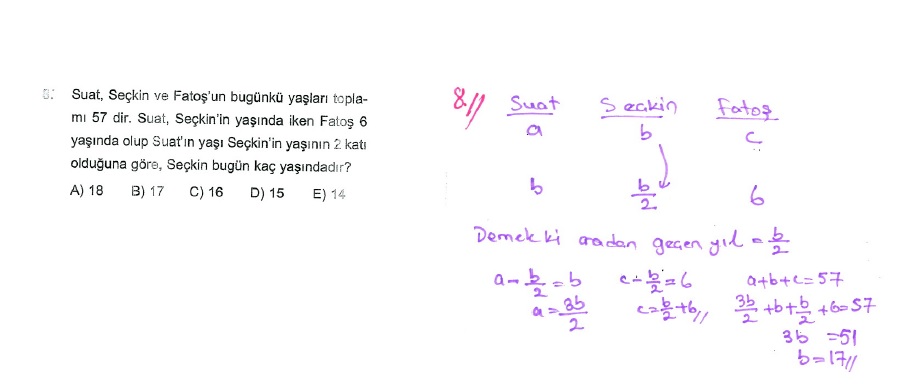 8. Suat, Seçkin ve Fatoş'un bugünkü yaşları topla-
mı 57 dir. Suat, Seçkin'in yaşında iken Fatoş 6
yaşında olup Suat'ın yaşı Seçkin'in yaşının 2 katı
olduğuna göre, Seçkin bugün kaç yaşındadır?
A) 18 B) 17 C) 16 D) 15 E) 14
8// Suat Seçkin Fatoş
a b c
b b/2 6
Demek ki aradan geçen yıl = b/2
a - b/2 = b c - b/2 = 6 a+b+c=57
a = 3b/2 c = b/2 + 6// 3b/2 + b + b/2 + 6 = 57
3b = 51
b = 17//